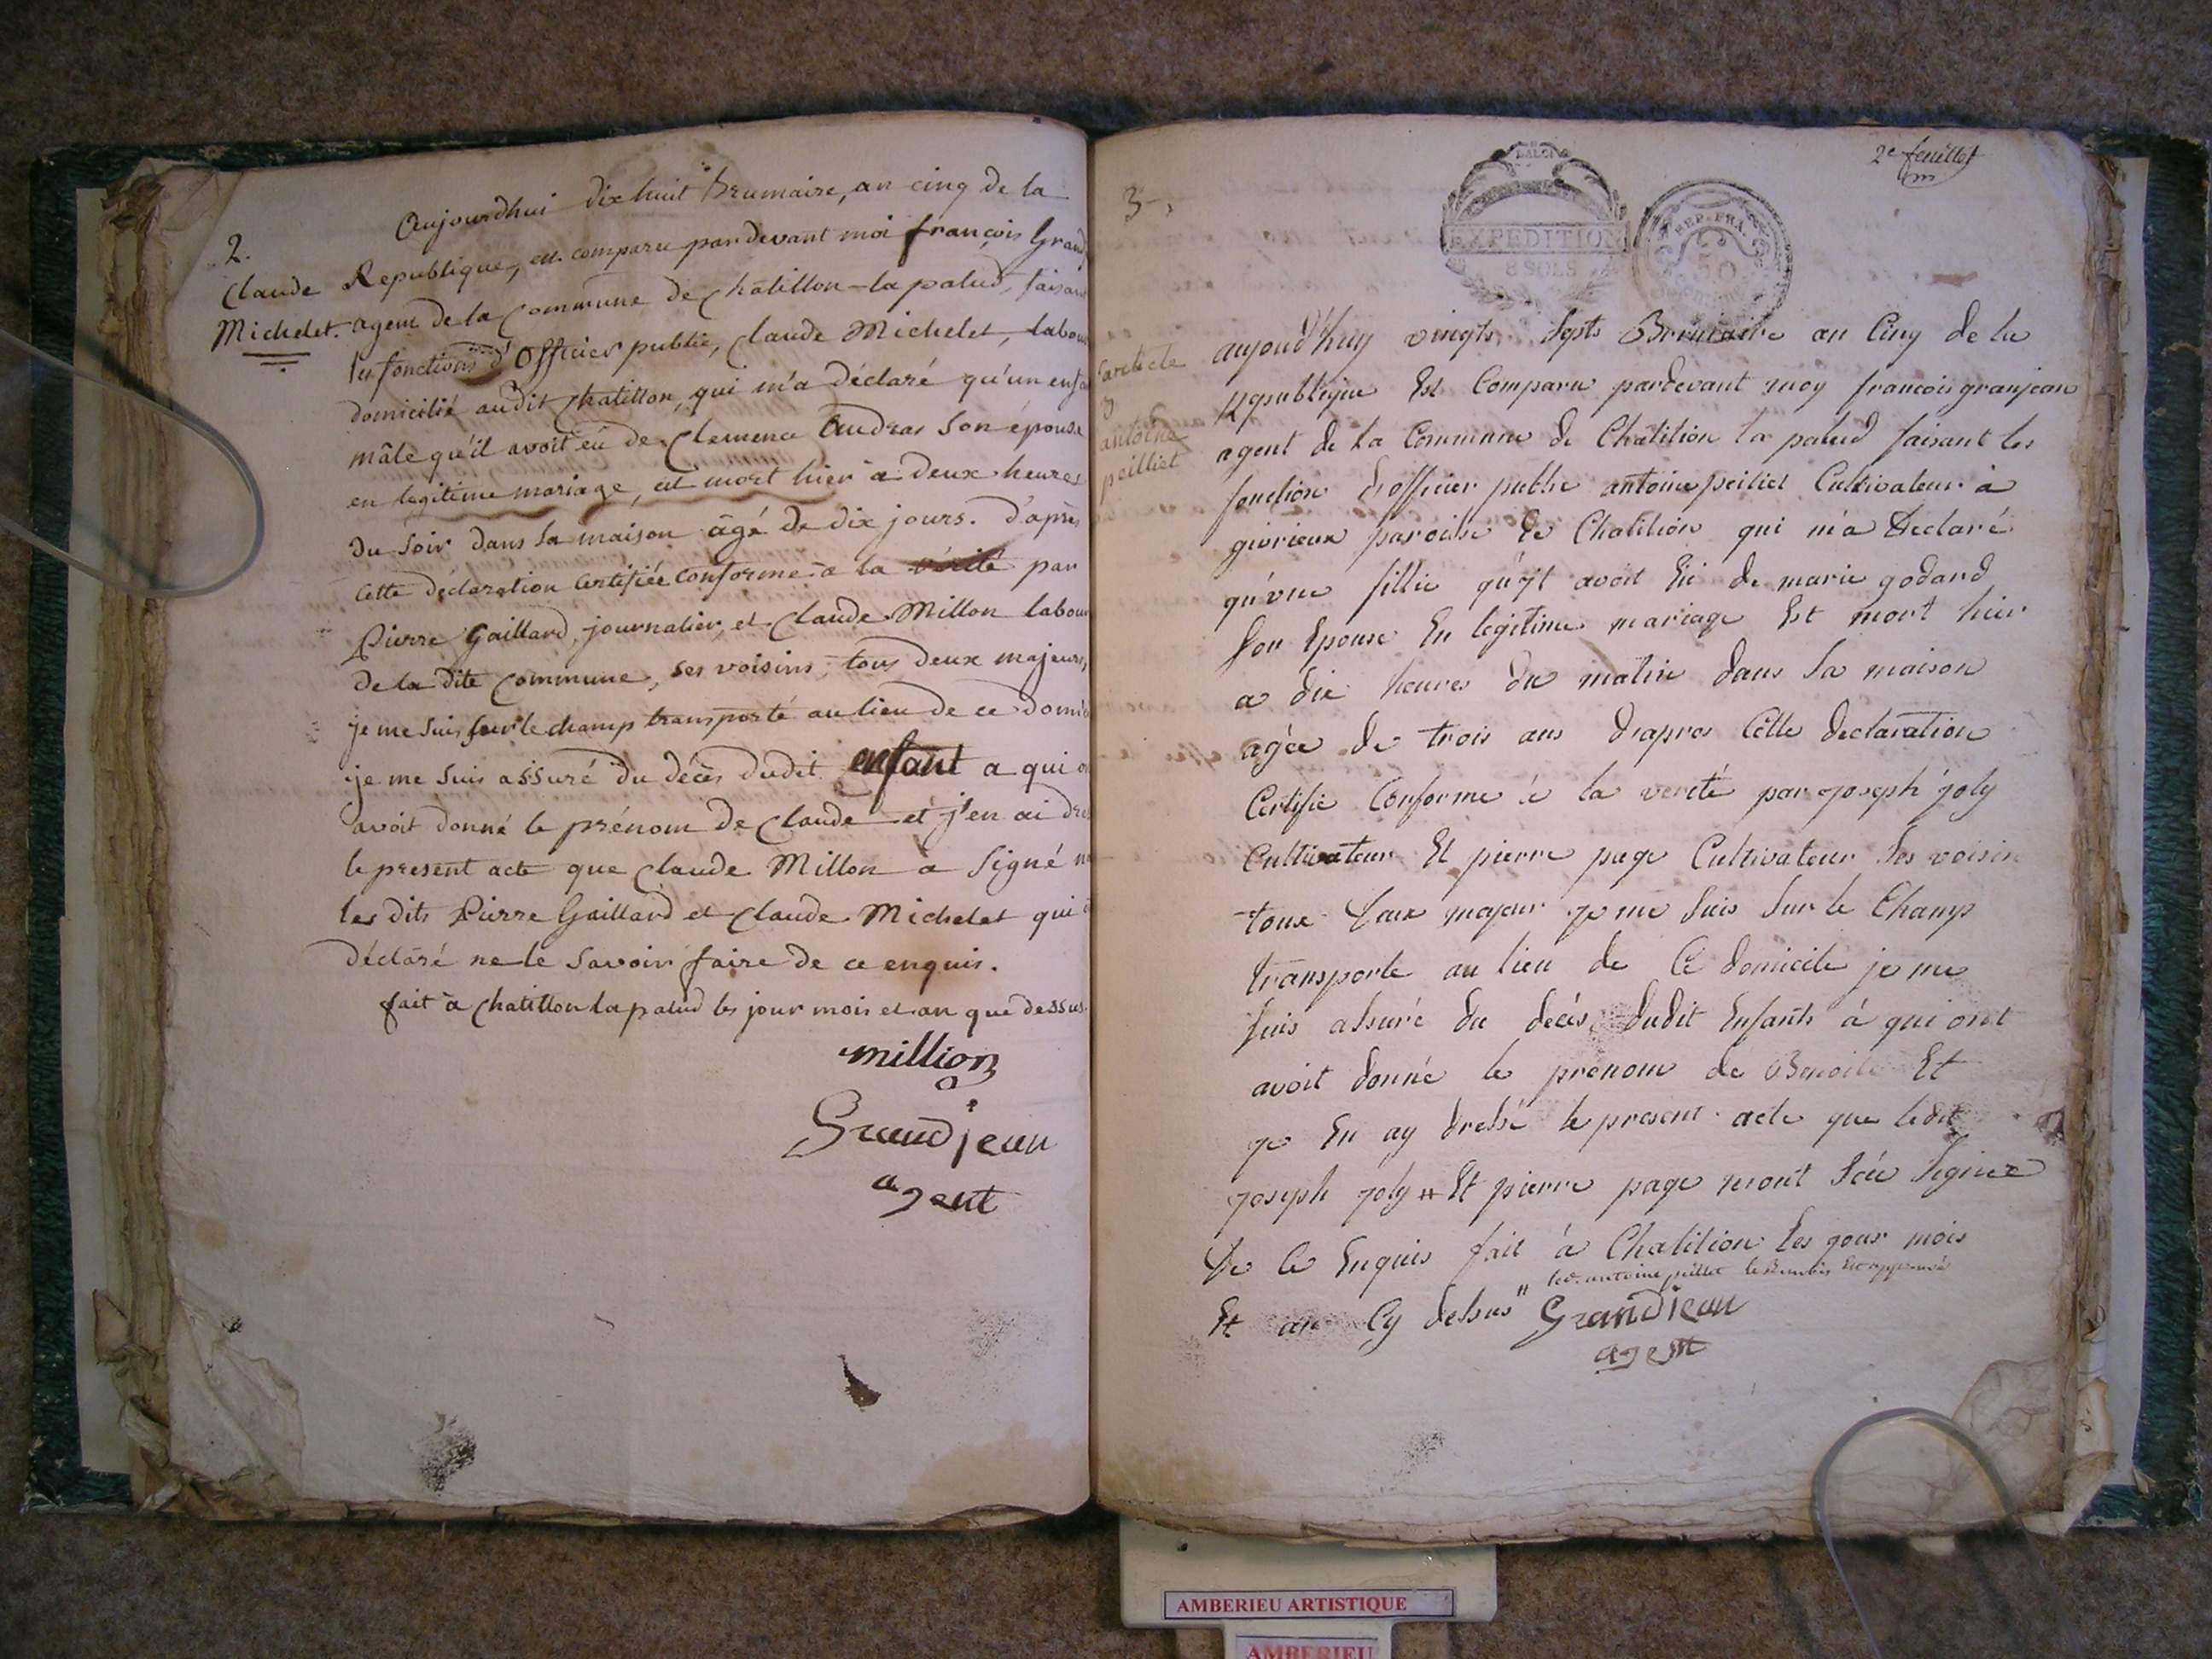 2.
Claude
Michelet.
Aujourdhui dix huit Brumaire, an cinq de la
Republique, est comparu pardevant moi françois Grand
agent de la Commune de Chatillon-la palud, faisant
les fonctions d'Officier public, Claude Michelet, labou
domicilié audit Chatillon, qui m'a déclaré qu'un enfa
mâle qu'il avoit eü de Clemence Audras son épouse
en legitime mariage, est mort hier à deux heures
du soir dans sa maison âgé de dix jours. d'après
cette déclaration certifiée conforme à la vérité par
Pierre Gaillard, journalier, et Claude Millon labou
de la dite Commune, ses voisins, tous deux majeurs,
je me suis sur le champ transporté au lieu de ce domic
je me suis assuré du décès dudit enfant a qui o
avoit donné le prénom de Claude et j'en ai dre
le present acte que Claude Millon a signé n
les dits Pierre Gaillard et Claude Michelet qui o
déclaré ne le savoir faire de ce enquis.
fait à Chatillon la palud les jour mois et an que dessus.
million
Grandjean
agent
2e feuillet
3-,
LA LOI
EXPEDITION
8 SOLS
REP. FRA.
50
article
3
antoine
peilliet
aujoud'huy vingts septs Brumaire an Cinq de la
Republique Est Comparu pardevant moy francois granjean
agent de la Commune de Chatilion la palud faisant les
fonction d'officier public antoine peiliet Cultivateur à
givrieux paroisse de Chatilion qui m'a Déclaré
qu'vne fillie qu'jl avoit Eü de marie godard
son Epouse En legitime mariage Est mort hier
a dix heures du matin dans sa maison
agée de trois ans d'apres Cette declaration
Certifié Conforme à la verité par joseph joly
Cultivateur Et pierre page Cultivateur ses voisin
toux deux majeur je me suis sur le Champ
transporte au lieu de Ce domicile je me
suis assuré du decés dudit Enfants à qui ont
avoit donné le prenom de Benoite Et
je En ay dressé le present acte que ledit
joseph joly # Et pierre page n'eont sçu signer
De Ce Enquis fait à Chatilion les jour mois
Et an Cy dessus " led. antoine peillet le Renvois Est approuvé
Grandjean
agent
AMBERIEU ARTISTIQUE
AMBERIEU